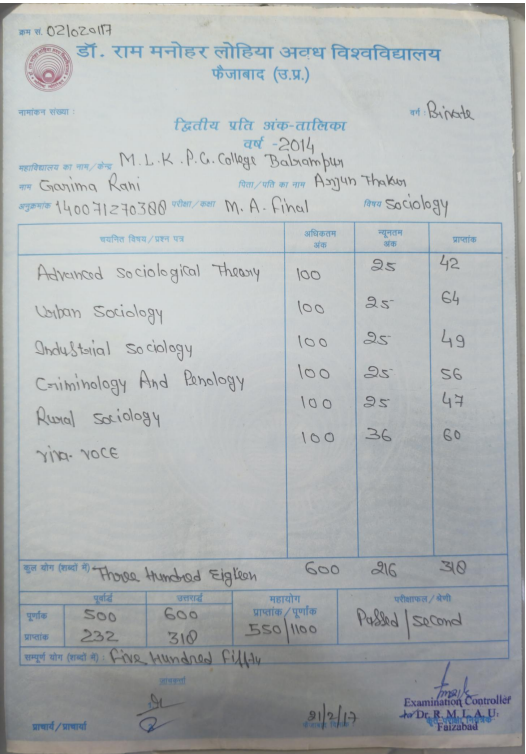 क्रम सं. 02/020117
डॉ. राम मनोहर लोहिया अवध विश्वविद्यालय
फैजाबाद (उ.प्र.)
नामांकन संख्या : वर्ग : Private
द्वितीय प्रति अंक-तालिका
वर्ष - 2014
महाविद्यालय का नाम/केन्द्र M.L.K.P.G. College Balrampur
नाम Garima Rani पिता/पति का नाम Arjun Thakur
अनुक्रमांक 140071270388 परीक्षा/कक्षा M.A. Final विषय Sociology
चयनित विषय/प्रश्न पत्र अधिकतम अंक न्यूनतम अंक प्राप्तांक
Advanced Sociological Theory 100 25 42
Urban Sociology 100 25 64
Industrial Sociology 100 25 49
Criminology And Penology 100 25 56
Rural Sociology 100 25 47
viva-voce 100 36 60
कुल योग (शब्दों में) Three Hundred Eigteen 600 216 318
पूर्वार्द्ध उत्तरार्द्ध महायोग प्राप्तांक/पूर्णांक परीक्षाफल/श्रेणी
पूर्णांक 500 600 550/1100 Passed/second
प्राप्तांक 232 318
सम्पूर्ण योग (शब्दों में) : Five Hundred Fiffty
Examination Controller
Dr. R. M. L. A. U.
Faizabad
प्राचार्य/प्राचार्या 21/2/17